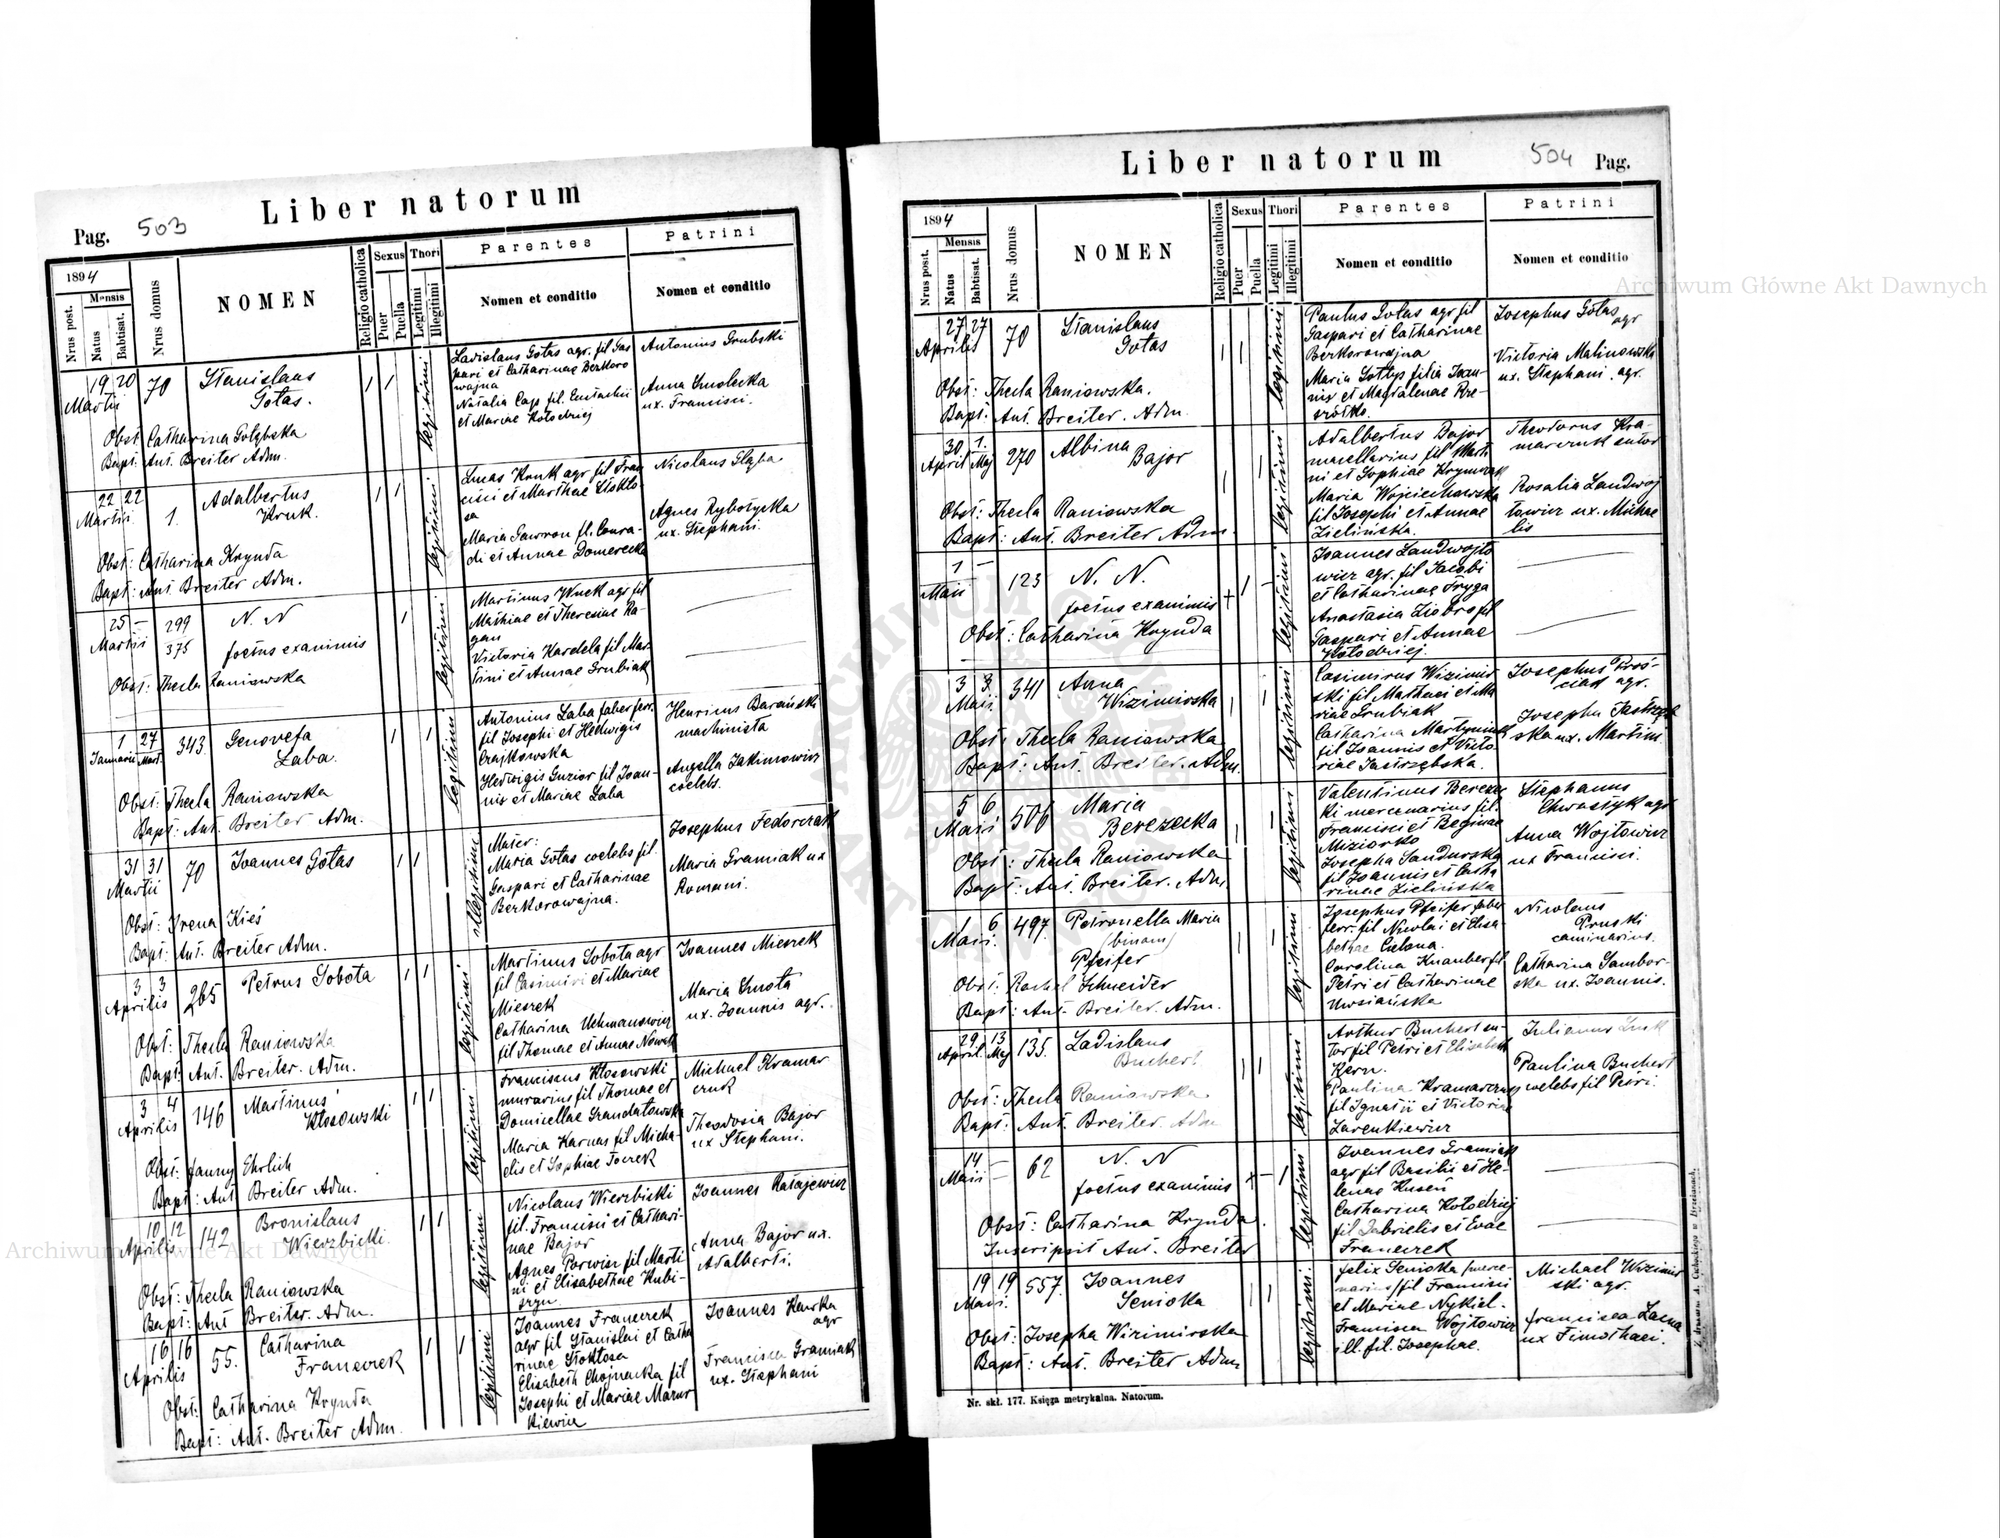 Pag. 503
Liber natorum
1894
Mensis
Nrus post.
Natus
Babtisat.
Nrus domus
NOMEN
Religio catholica
Sexus
Puer
Puella
Thori
Legitimi
Illegitimi
Parentes
Nomen et conditio
Patrini
Nomen et conditio
19 20
Martii
70
Stanislaus
Gołas.
Obst Catharina Gołębska
Bapt: Ant. Breiter Adm.
legitimi
Ladislaus Gołas agr. fil Gas
pari et Catharinae Bezkoro
wajna
Natalia Cap fil. Eustachii
et Mariae Kołodziej
Antonius Grubski
Anna Smolecka
ux. Francisci.
22 22
Martii
1.
Adalbertus
Kruk.
Obst: Catharina Krynda
Bapt: Ant Breiter Adm.
legitimi
Lucas Kruk agr fil Fran
cisci et Marthae
Maria Gawron fil. Conra
di et Annae Domerecka
Nicolaus Głąba
Agnes Rybotycka
ux. Stephani.
25 —
Martii
299
375
N. N
foetus exanimis
Obst: Thecla Raniowska
legitimi
Martinus Wnek agr fil
Mathiae et Theresiae Ra-
gan
Victoria Kardela fil Mar-
tini et Annae Grubiak
1 27
Januarii Mart.
343
Genovefa
Łaba.
Obst: Thecla Raniowska
Bapt: Ant. Breiter Adm.
legitimi
Antonius Łaba faber ferr.
fil Josephi et Hedwigis
Czajkowska
Hedwigis Guzior fil Joan-
nis et Mariae Łaba
Henricus Barański
machinista
Angella Jakimowicz
coelebs.
31 31
Martii
70
Joannes Gołas
Obst: Irena Kieś
Bapt: Ant. Breiter Adm.
illegitimi
Mater:
Maria Gołas coelebs fil.
Gaspari et Catharinae
Bezkorowajna.
Josephus Fedorczak
Maria Gramiak ux
Romani.
3 3
Aprilis
265
Petrus Sobota
Obst: Thecla Raniowska
Bapt: Ant. Breiter. Adm.
legitimi
Martinus Sobota agr
fil Casimiri et Mariae
Mieszek
Catharina Uchmanowicz
fil Thomae et Annae Nowak
Joannes Mieszek
Maria Smota
ux. Joannis agr.
3 4
Aprilis
146
Martinus
Kłosowski
Obst: Fanny Ehrlich
Bapt: Ant Breiter Adm.
legitimi
Franciscus Kłosowski
murarius fil Thomae et
Domicellae Grandatowska
Maria Karnas fil Micha-
elis et Sophiae Toczek
Michael Kramar
czuk
Theodosia Bajor
ux Stephani.
10 12
Aprilis
142
Bronislaus
Wierzbicki.
Obst: Thecla Raniowska
Bapt: Ant Breiter. Adm.
legitimi
Nicolaus Wierzbicki
fil. Francisci et Cathari-
nae Bajor
Agnes Parwicz fil Marti
ni et Elisabethae Kubi-
szyn.
Joannes Ratajewicz
Anna Bajor ux.
Adalberti.
16 16
Aprilis
55.
Catharina
Franczek
Obst: Catharina Krynda
Bapt: Ant. Breiter Adm.
legitimi
Joannes Franczek
agr fil Stanislai et Catha
rinae Stoktosa
Elisabeth Chojnacka fil
Josephi et Mariae Mazur
kiewicz
Joannes Kurka
agr
Francisca Gramiak
ux. Stephani
Liber natorum
504 Pag.
1894
Mensis
Nrus post.
Natus
Babtisat.
Nrus domus
NOMEN
Religio catholica
Sexus
Puer
Puella
Thori
Legitimi
Illegitimi
Parentes
Nomen et conditio
Patrini
Nomen et conditio
27 27
Aprilis
70
Stanislaus
Gołas
Obst: Thecla Raniowska.
Bapt: Ant. Breiter. Adm.
legitimi
Paulus Gołas agr fil
Gaspari et Catharinae
Bezkorowajna
Maria Sołtys filia Joan-
nis et Magdalenae Rze-
szótko.
Josephus Gołas
agr
Victoria Malinowska
ux. Stephani. agr.
30. 1.
April Maj
270
Albina
Bajor
Obst: Thecla Raniowska
Bapt: Ant. Breiter Adm.
legitimi
Adalbertus Bajor
macellarius fil Marti
ni et Sophiae Krymczak
Maria Wojciechowska
fil Josephi et Annae
Zielińska.
Theodorus Kra-
marczuk sutor
Rosalia Landwoj
towicz ux. Michae
lis
1 —
Maii
123
N. N.
foetus exanimis
Obst: Catharina Krynda
legitimi
Joannes Landwojto
wicz agr. fil Jacobi
et Catharinae Fryga
Anastasia Ziobro fil
Gaspari et Annae
Kołodziej.
3 3.
Maii
341
Anna
Wizimirska
Obst: Thecla Raniowska
Bapt: Ant. Breiter. Adm.
legitimi
Casimirus Wizimir
ski fil Mathaei et Ma
riae Grubiak
Catharina Martyniuk
fil Joannis et Victo
riae Jastrzębska.
Josephus Proś-
ciak agr.
Josepha Jastrzęb
ska ux. Martini
5 6
Maii
506
Maria
Berezecka
Obst: Thecla Raniowska
Bapt: Ant. Breiter. Adm.
legitimi
Valentinus Berezec
ki mercenarius fil.
Francisci et Reginae
Miziorko
Josepha Sandurska
fil Joannis et Catha
rinae Zielińska
Stephanus
Chwastyk agr
Anna Wojtowicz
ux Francisci.
1 6
Maii.
497
Petronella Maria
(binom)
Pfeifer
Obst. Rachel Schneider
Bapt: Ant. Breiter. Adm.
legitimi
Josephus Pfeifer faber
ferr. fil Nicolai et Elisa-
bethae Cielona.
Carolina Knauber fil
Petri et Catharinae
Uwsiańska
Nicolaus
Pruski
caminarius.
Catharina Sambor-
ska ux. Joannis.
29. 13
April. Maj
135.
Ladislaus
Buchert
Obst: Thecla Raniowska
Bapt: Ant. Breiter. Adm
legitimi
Arthur Buchert su-
tor fil Petri et Elisabeth
Kern.
Paulina Kramarczuk
fil Ignatii et Victoriae
Lazenkiewicz
Julianus
Paulina Buchert
coelebs fil Petri.
14 —
Maii
62
N. N
foetus exanimis
Obst: Catharina Krynda.
Inscripsit Ant. Breiter
legitimi
Joannes Gramiak
agr fil Basilii et He-
lenae Kuseń
Catharina Kołodziej
fil Gabrielis et Evae
Franczek
19 19
Maii.
557.
Joannes
Seniska
Obst: Josepha Wizimirska
Bapt: Ant. Breiter Adm
legitimi
Felix Seniska (merce-
narius) fil Francisci
et Mariae Nykiel.
Francisca Wojtowicz
ill. fil. Josephae.
Michael Wizimir
ski agr.
Francisca Lacna
ux Timothaei.
Nr. skł. 177. Księga metrykalna. Natorum.
Z drukarni A. Cichockiego w Brzeżanach.
Archiwum Główne Akt Dawnych
Archiwum Główne Akt Dawnych